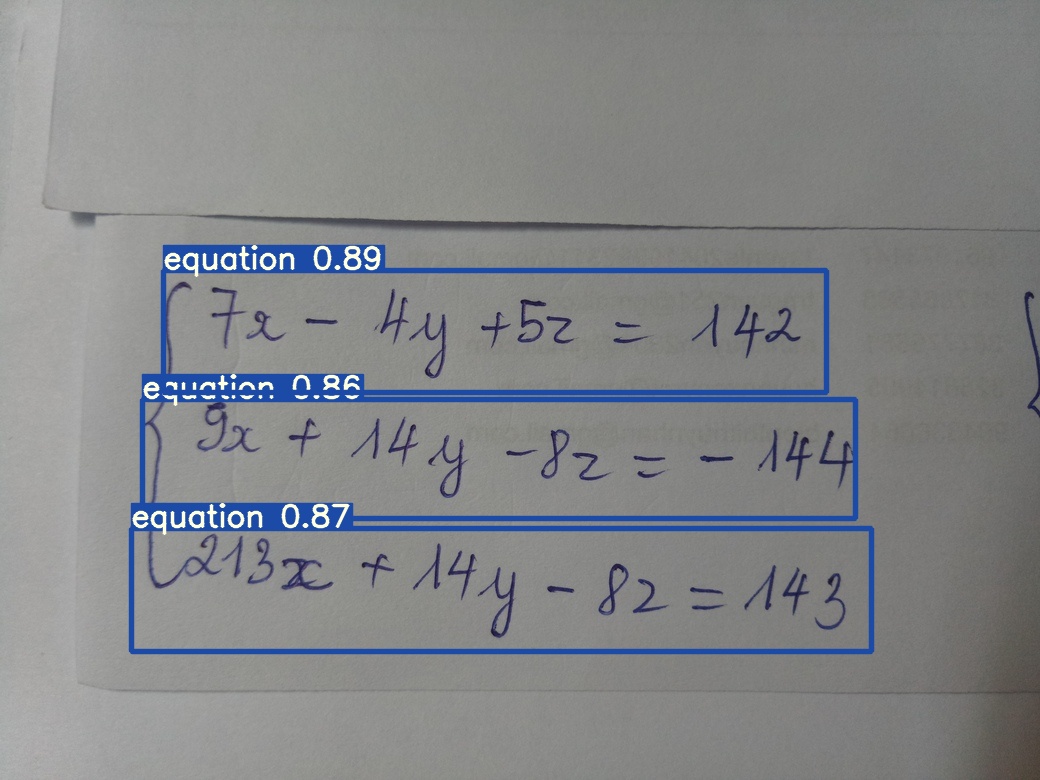 equation 0.89
7x - 4y + 5z = 142
equation 0.86
9x + 14y - 8z = - 144
equation 0.87
213x + 14y - 8z = 143